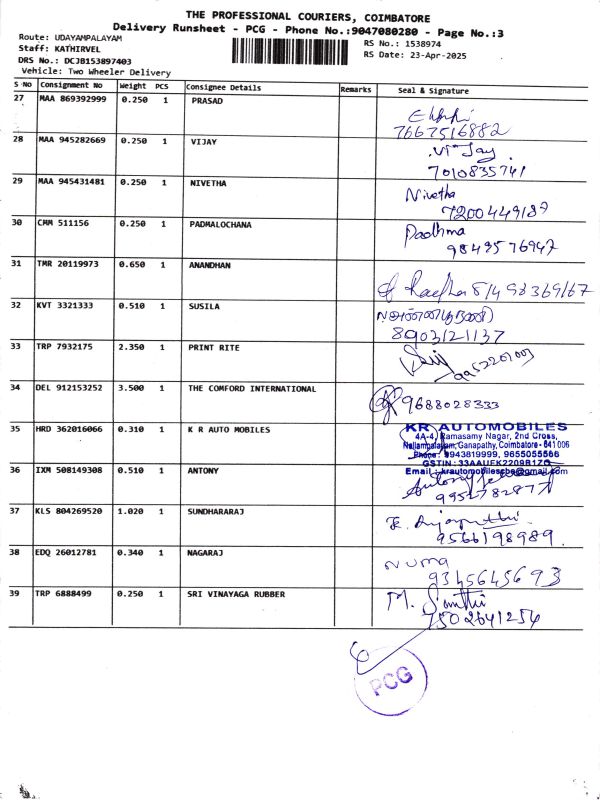 THE PROFESSIONAL COURIERS, COIMBATORE
Delivery Runsheet - PCG - Phone No.:9047080280 - Page No.:3
Route: UDAYAMPALAYAM
RS No.: 1538974
Staff: KATHIRVEL
RS Date: 23-Apr-2025
DRS No.: DCJB153897403
Vehicle: Two Wheeler Delivery
S No Consignment No Weight PCS Consignee Details Remarks Seal & Signature
27 MAA 869392999 0.250 1 PRASAD
7667516882
28 MAA 945282669 0.250 1 VIJAY
Vijay
7010835741
29 MAA 945431481 0.250 1 NIVETHA
Nivetha
7200449187
30 CMM 511156 0.250 1 PADMALOCHANA
Padhma
9849576947
31 TMR 20119973 0.650 1 ANANDHAN
81498369167
32 KVT 3321333 0.510 1 SUSILA
8903121137
33 TRP 7932175 2.350 1 PRINT RITE
9952201003
34 DEL 912153252 3.500 1 THE COMFORD INTERNATIONAL
9688028333
35 HRD 362016066 0.310 1 K R AUTO MOBILES
KR AUTOMOBILES
4A-4, Ramasamy Nagar, 2nd Cross,
Nallampalayam, Ganapathy, Coimbatore - 641 006
Phone: 9943819999, 9655055566
GSTIN: 33AAUFK2209B1ZG
Email: krautomobilescbe@gmail.com
36 IXM 508149308 0.510 1 ANTONY
Antony
9952782877
37 KLS 804269520 1.020 1 SUNDHARARAJ
9566198989
38 EDQ 26012781 0.340 1 NAGARAJ
NUMA
9345645693
39 TRP 6888499 0.250 1 SRI VINAYAGA RUBBER
M. Santhi
7502641254
PCG